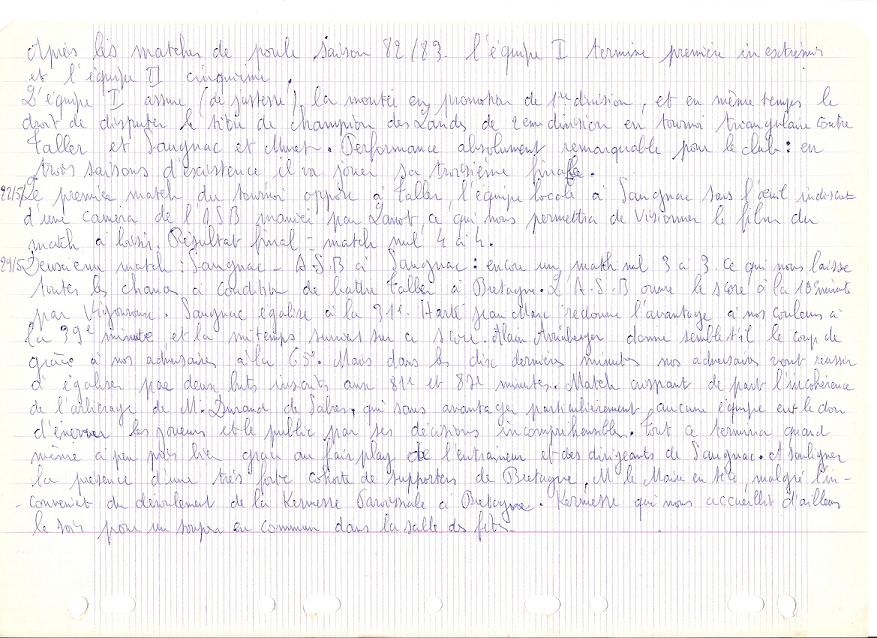 Après les matches de poule saison 82/83. l'équipe I termine première in extrémis
et l'équipe II cinquième.
L'équipe I assure (de justesse) la montée en promotion de 1re division, et en même temps le
droit de disputer le titre de champion des Landes de 2eme division en tournoi triangulaire contre
Taller et Saugnac et Muret. Performance absolument remarquable pour le club : en
trois saisons d'existence il va jouer sa troisième finale.
22/5 Le premier match du tournoi oppose à Taller, l'équipe locale à Saugnac sous l'oeuil indiscret
d'une camera de l'ASB maniée par Lanot ce qui nous permettra de visionner le film du
match à loisir. Résultat final = match nul 4 à 4.
29/5 Deuxième match : Saugnac - A.S.B à Saugnac : encore un match nul 3 à 3. ce qui nous laisse
toutes les chances à condition de battre Taller à Bretagne. L'A.S.B ouvre le score à la 10e minute
par Vignonne. Saugnac égalise à la 31e. Jean Marc redonne l'avantage à nos couleurs à
la 39e minute et la mi temps survient sur ce score. Alain donne semble t'il le coup de
grâce à nos adversaires à la 65e. Mais dans les dix dernières minutes nos adversaires vont reussir
à égaliser par deux buts inscrits aux 81e et 87e minutes. Match crispant de part l'incohérence
de l'arbitrage de M. Durand de Sabres, qui sans avantager particulièrement aucune équipe eut le don
d'énerver les joueurs et le public par ses décisions incompréhensibles. Tout ce termina quand
même à peu près bien grace au fair play de l'entraineur et des dirigeants de Saugnac. A souligner
la présence d'une très forte cohorte de supporters de Bretagne, M le Maire en tête, malgré l'in-
- convenient du déroulement de la Kermesse Paroissiale à Bretagne. Kermesse qui nous accueillit d'ailleurs
le soir pour un souper en commun dans la salle des fêtes.